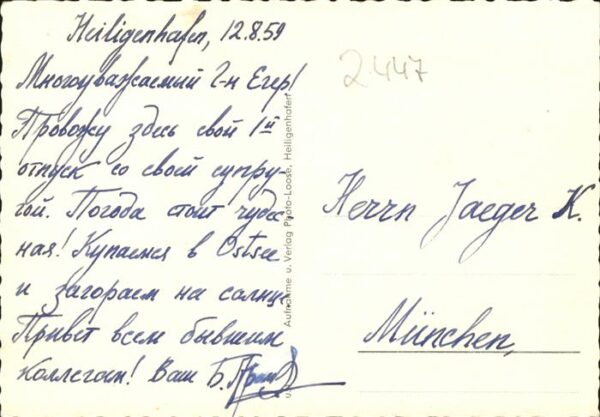 Heiligenhafen, 12.8.59
Многоуважаемый г-н Егер!
Провожу здесь свой 1й
отпуск со своей супру-
гой. Погода стоит чудес
ная! Купаемся в Ostsee
и загораем на солнц
Привет всем бывшим
коллегам! Ваш Б.
2447
Herrn Jaeger K.
München,
Aufnahme u. Verlag Photo-Loose, Heiligenhafen